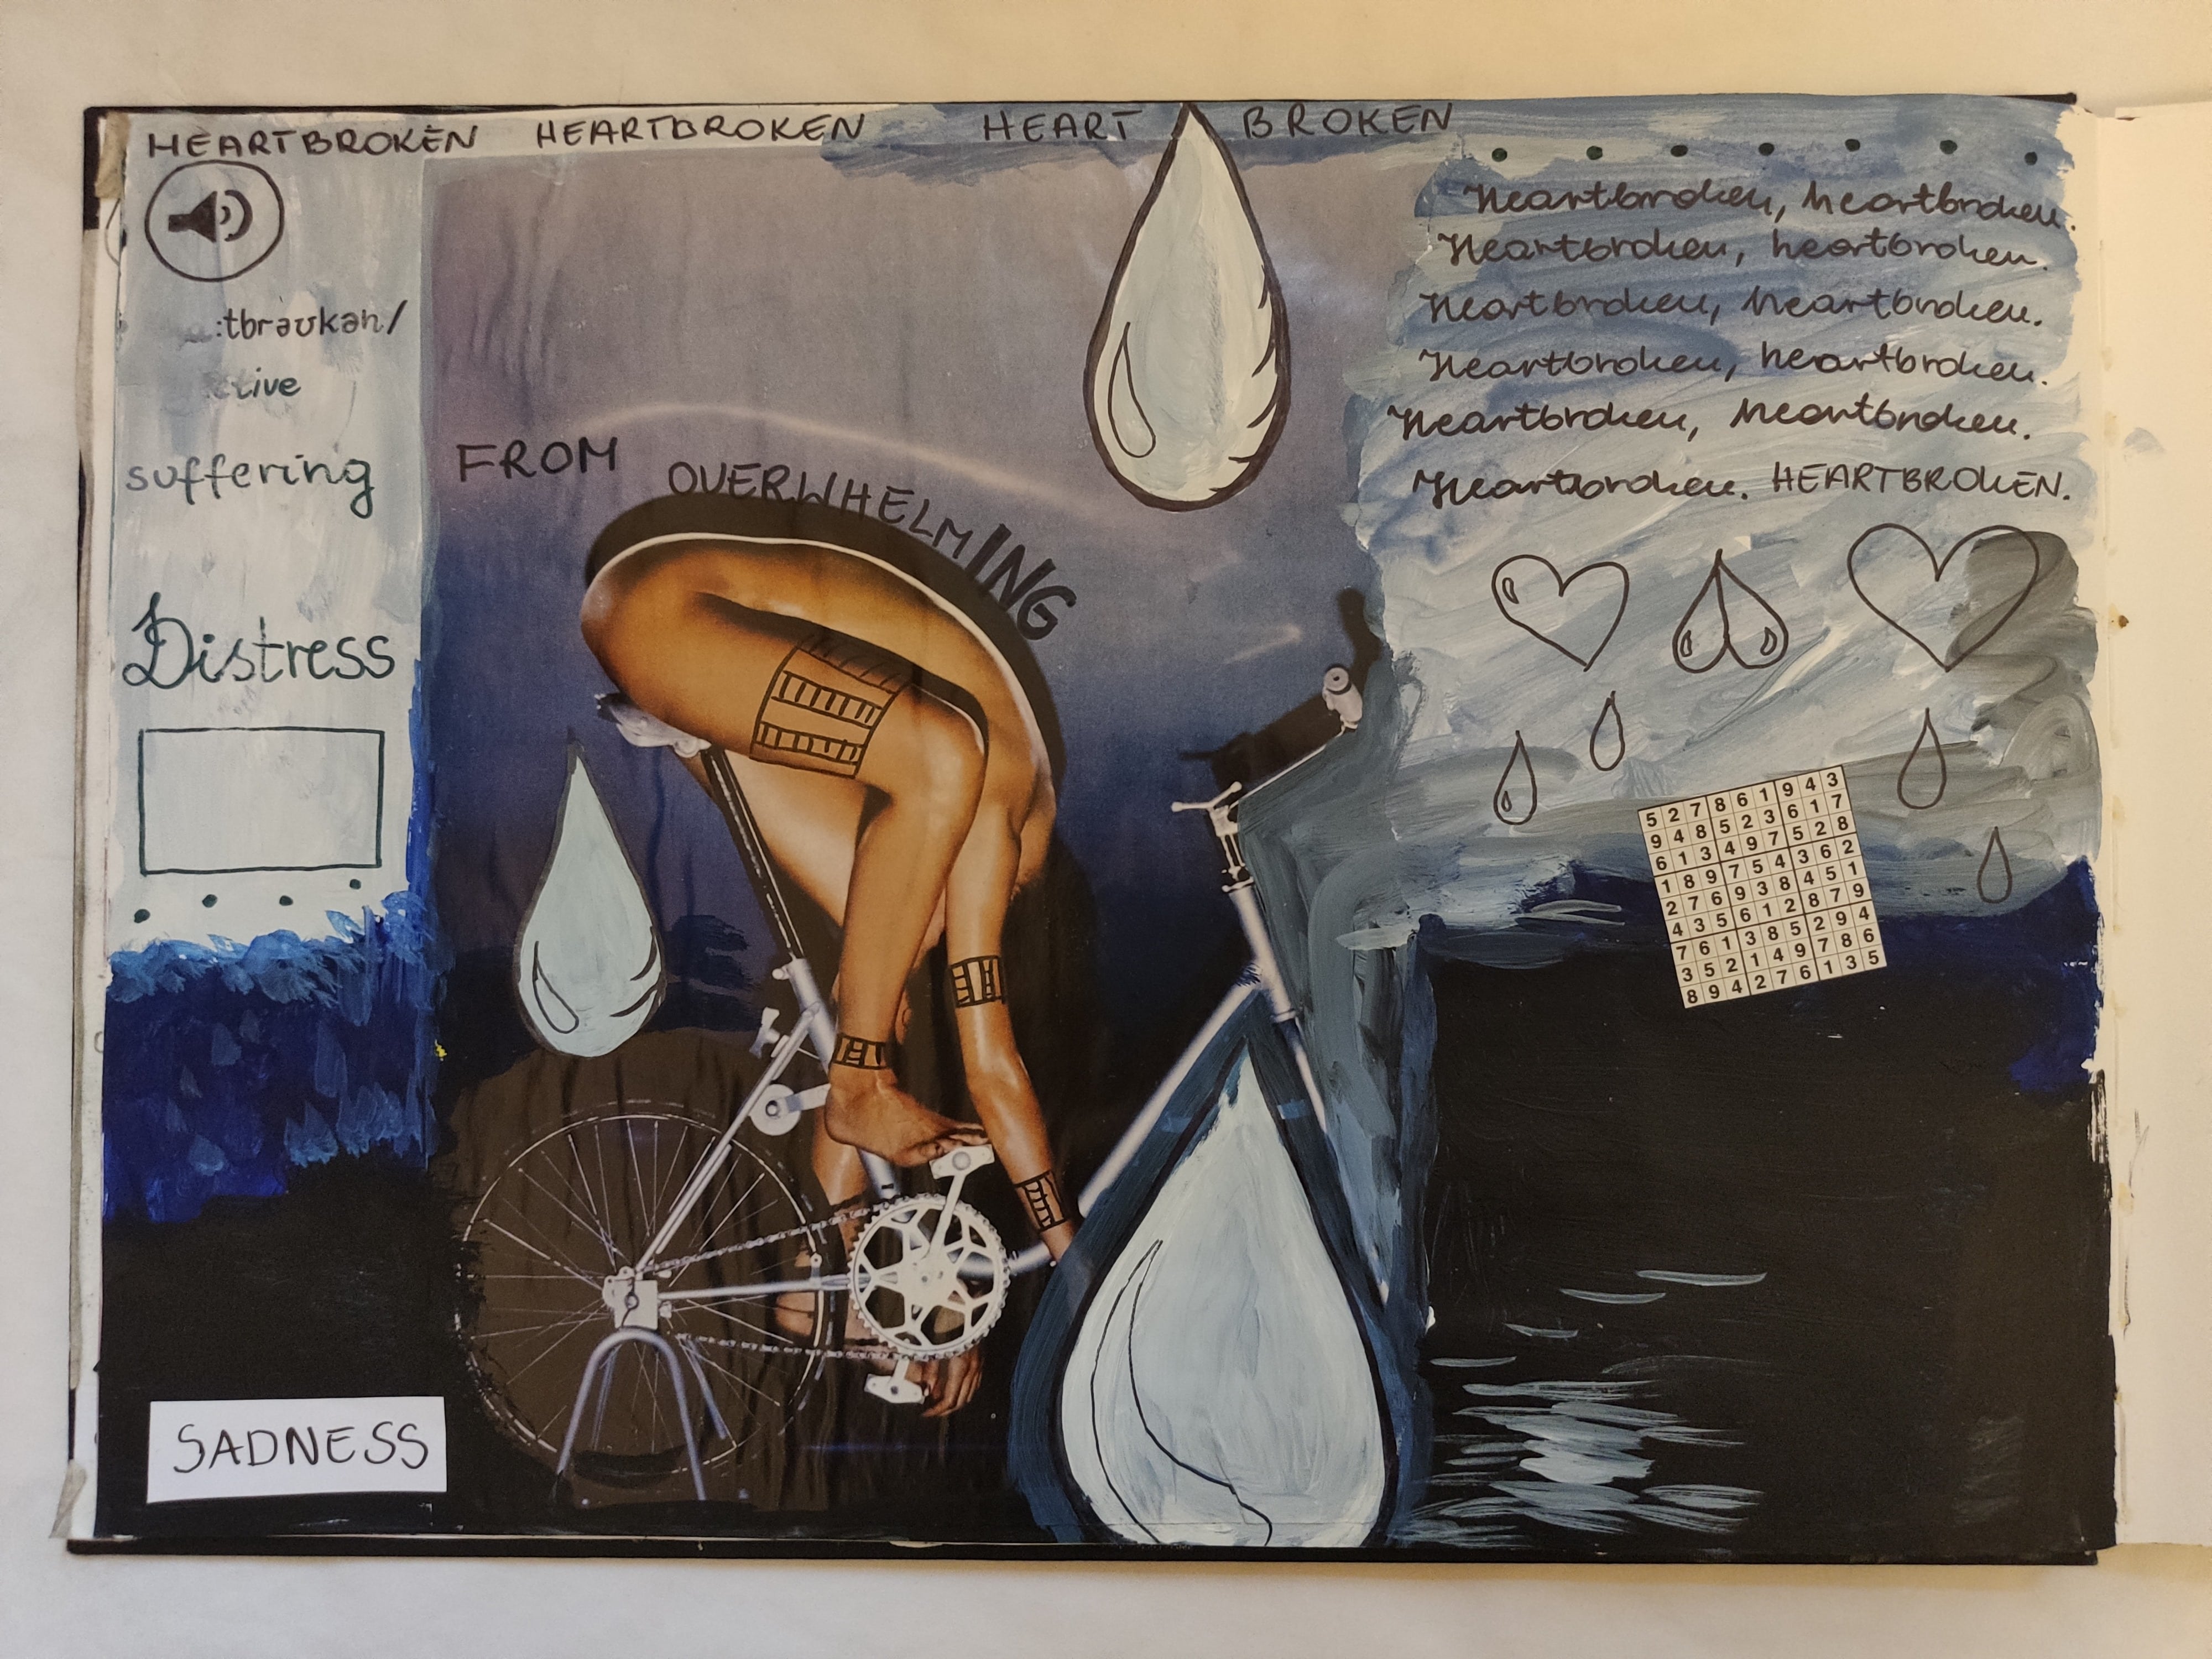 HEARTBROKEN HEARTBROKEN HEART BROKEN
:tbrəʊkən/
suffering
Distress
FROM OVERWHELMING
Heartbroken, heartbroken.
Heartbroken, heartbroken.
Heartbroken, heartbroken.
Heartbroken, heartbroken.
Heartbroken, heartbroken.
Heartbroken. HEARTBROKEN.
5 2 7 8 6 1 9 4 3
9 4 8 5 2 3 6 1 7
6 1 3 4 9 7 5 2 8
1 8 9 7 5 4 3 6 2
2 7 6 9 3 8 4 5 1
4 3 5 6 1 2 8 7 9
7 6 1 3 8 5 2 9 4
3 5 2 1 4 9 7 8 6
8 9 4 2 7 6 1 3 5
SADNESS